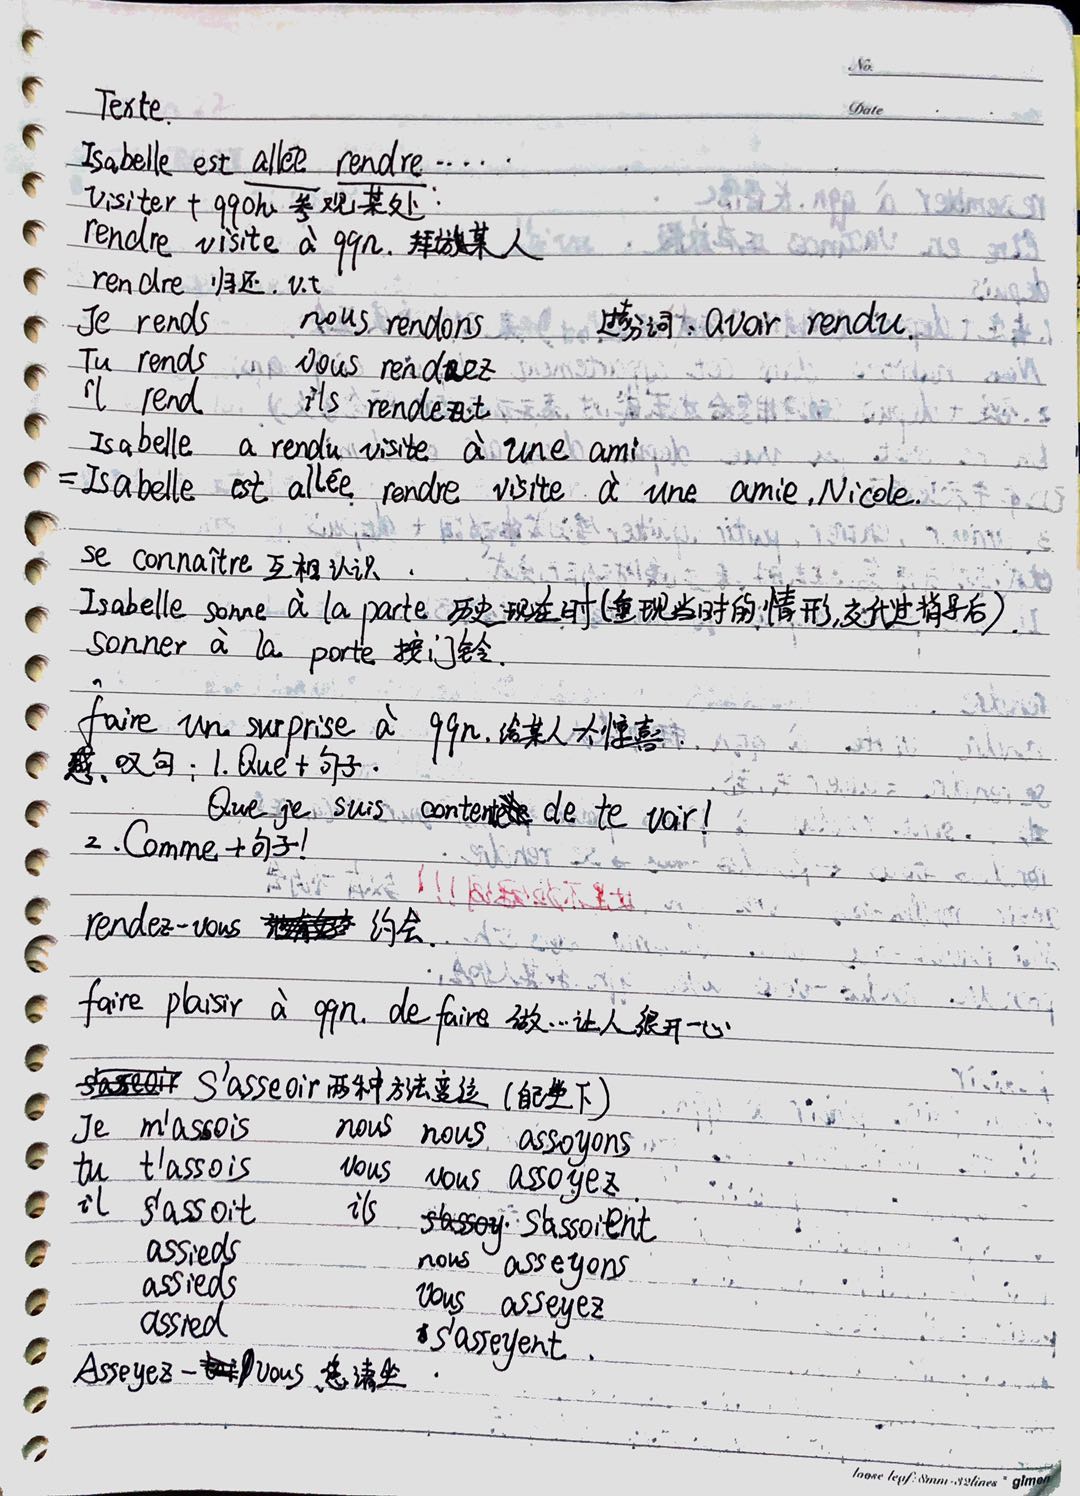 No.
Date
Texte.
Isabelle est allée rendre .....
visiter + qqch. 参观某处
rendre visite à qqn. 拜访某人
rendre 归还. v.t
Je rends nous rendons 过去分词: avoir rendu.
Tu rends vous rendez
il rend ils rendent
Isabelle a rendu visite à une ami
= Isabelle est allée rendre visite à une amie, Nicole.
se connaître 互相认识 .
Isabelle sonne à la parte 历史现在时(重现当时的情形,交代过背景后).
sonner à la porte 按门铃.
faire un surprise à qqn. 给某人个惊喜.
感叹句: 1. Que + 句子.
Que je suis content de te voir!
2. Comme + 句子!
rendez-vous 约会.
faire plaisir à qqn. de faire 做...让人很开心
S'asseoir 两种方法变位 (自己坐下)
Je m'assois nous nous assoyons
tu t'assois vous vous assoyez
il s'assoit ils s'assoient
assieds nous asseyons
assieds vous asseyez
assied s'asseyent.
Asseyez-vous 您请坐 .
loose leaf: 8mm-32lines